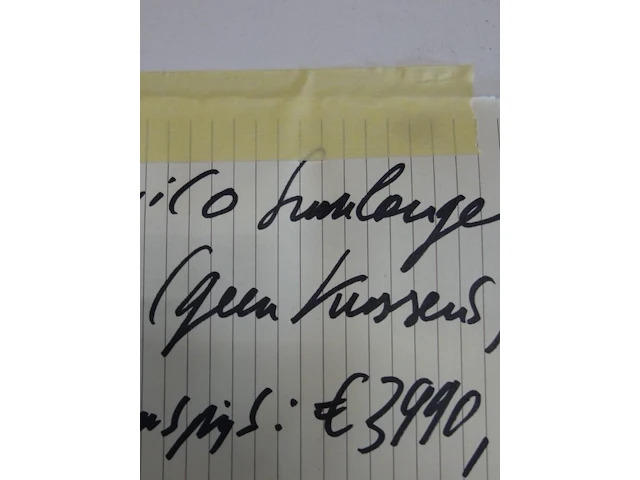 ico sunlounge
(geen kussens,
nsprijs: € 3990,